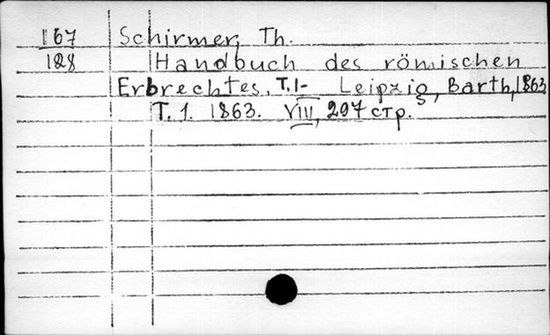 167 Schirmer, Th.
128 Handbuch des römischen
Erbrechtes, T.1- Leipzig, Barth, 1863
T. 1. 1863. VIII, 297 стр.